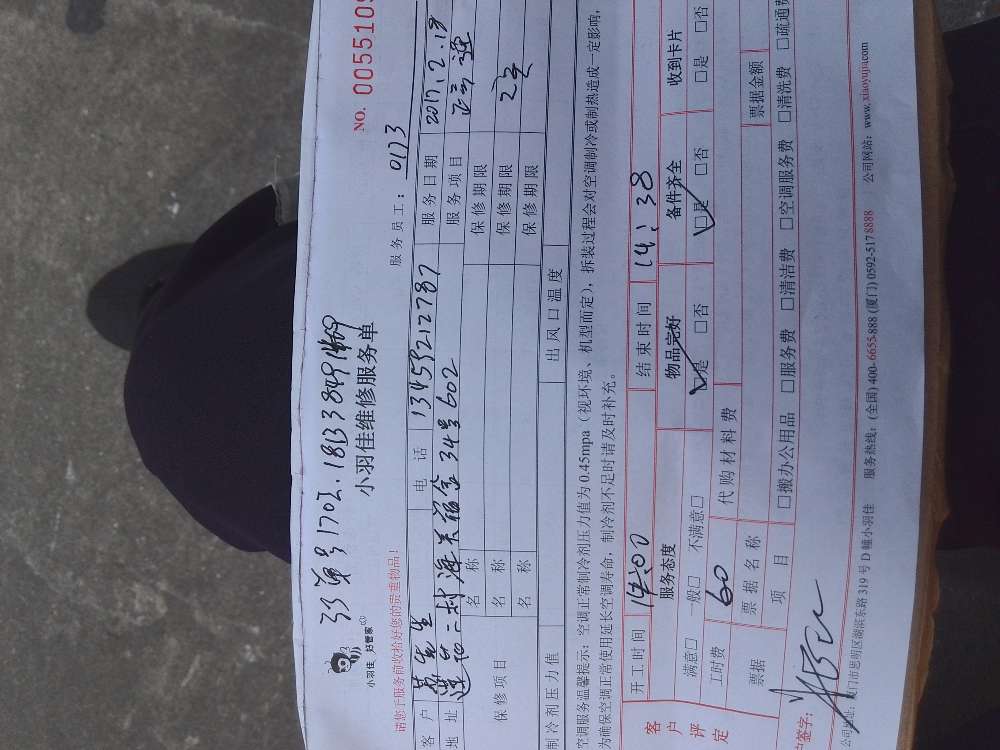 33 号1702. 18138491469
小羽佳 好管家
小羽佳维修服务单
NO. 0055109
请您于服务前收拾好您的贵重物品!
服务员工: 0173
客户 黄先生 电话 13459212787 服务日期 2017.12.18
地址 莲花二村 34号602 服务项目
保修项目 名称 保修期限
名称 保修期限 2年
名称 保修期限
制冷剂压力值 出风口温度
空调服务温馨提示:空调正常制冷剂压力值为0.45mpa(视环境、机型而定),拆装过程会对空调制冷或制热造成一定影响,
为确保空调正常使用延长空调寿命,制冷剂不足时请及时补充。
开工时间 14:00 结束时间 14:38
客户评定 服务态度 物品完好 备件齐全 收到卡片
满意□ 一般□ 不满意□ □是 □否 □是 □否 □是 □否
工时费 60 代购材料费
票据 票据名称 票据金额
项目 □搬办公用品 □服务费 □清洁费 □空调服务费 □清洗费 □疏通费
户签字:
公司地址:厦门市思明区湖滨东路319号D幢小羽佳 服务热线:(全国) 400-6655-888 (厦门) 0592-5178888 公司网站:www.xiaoyujia.com